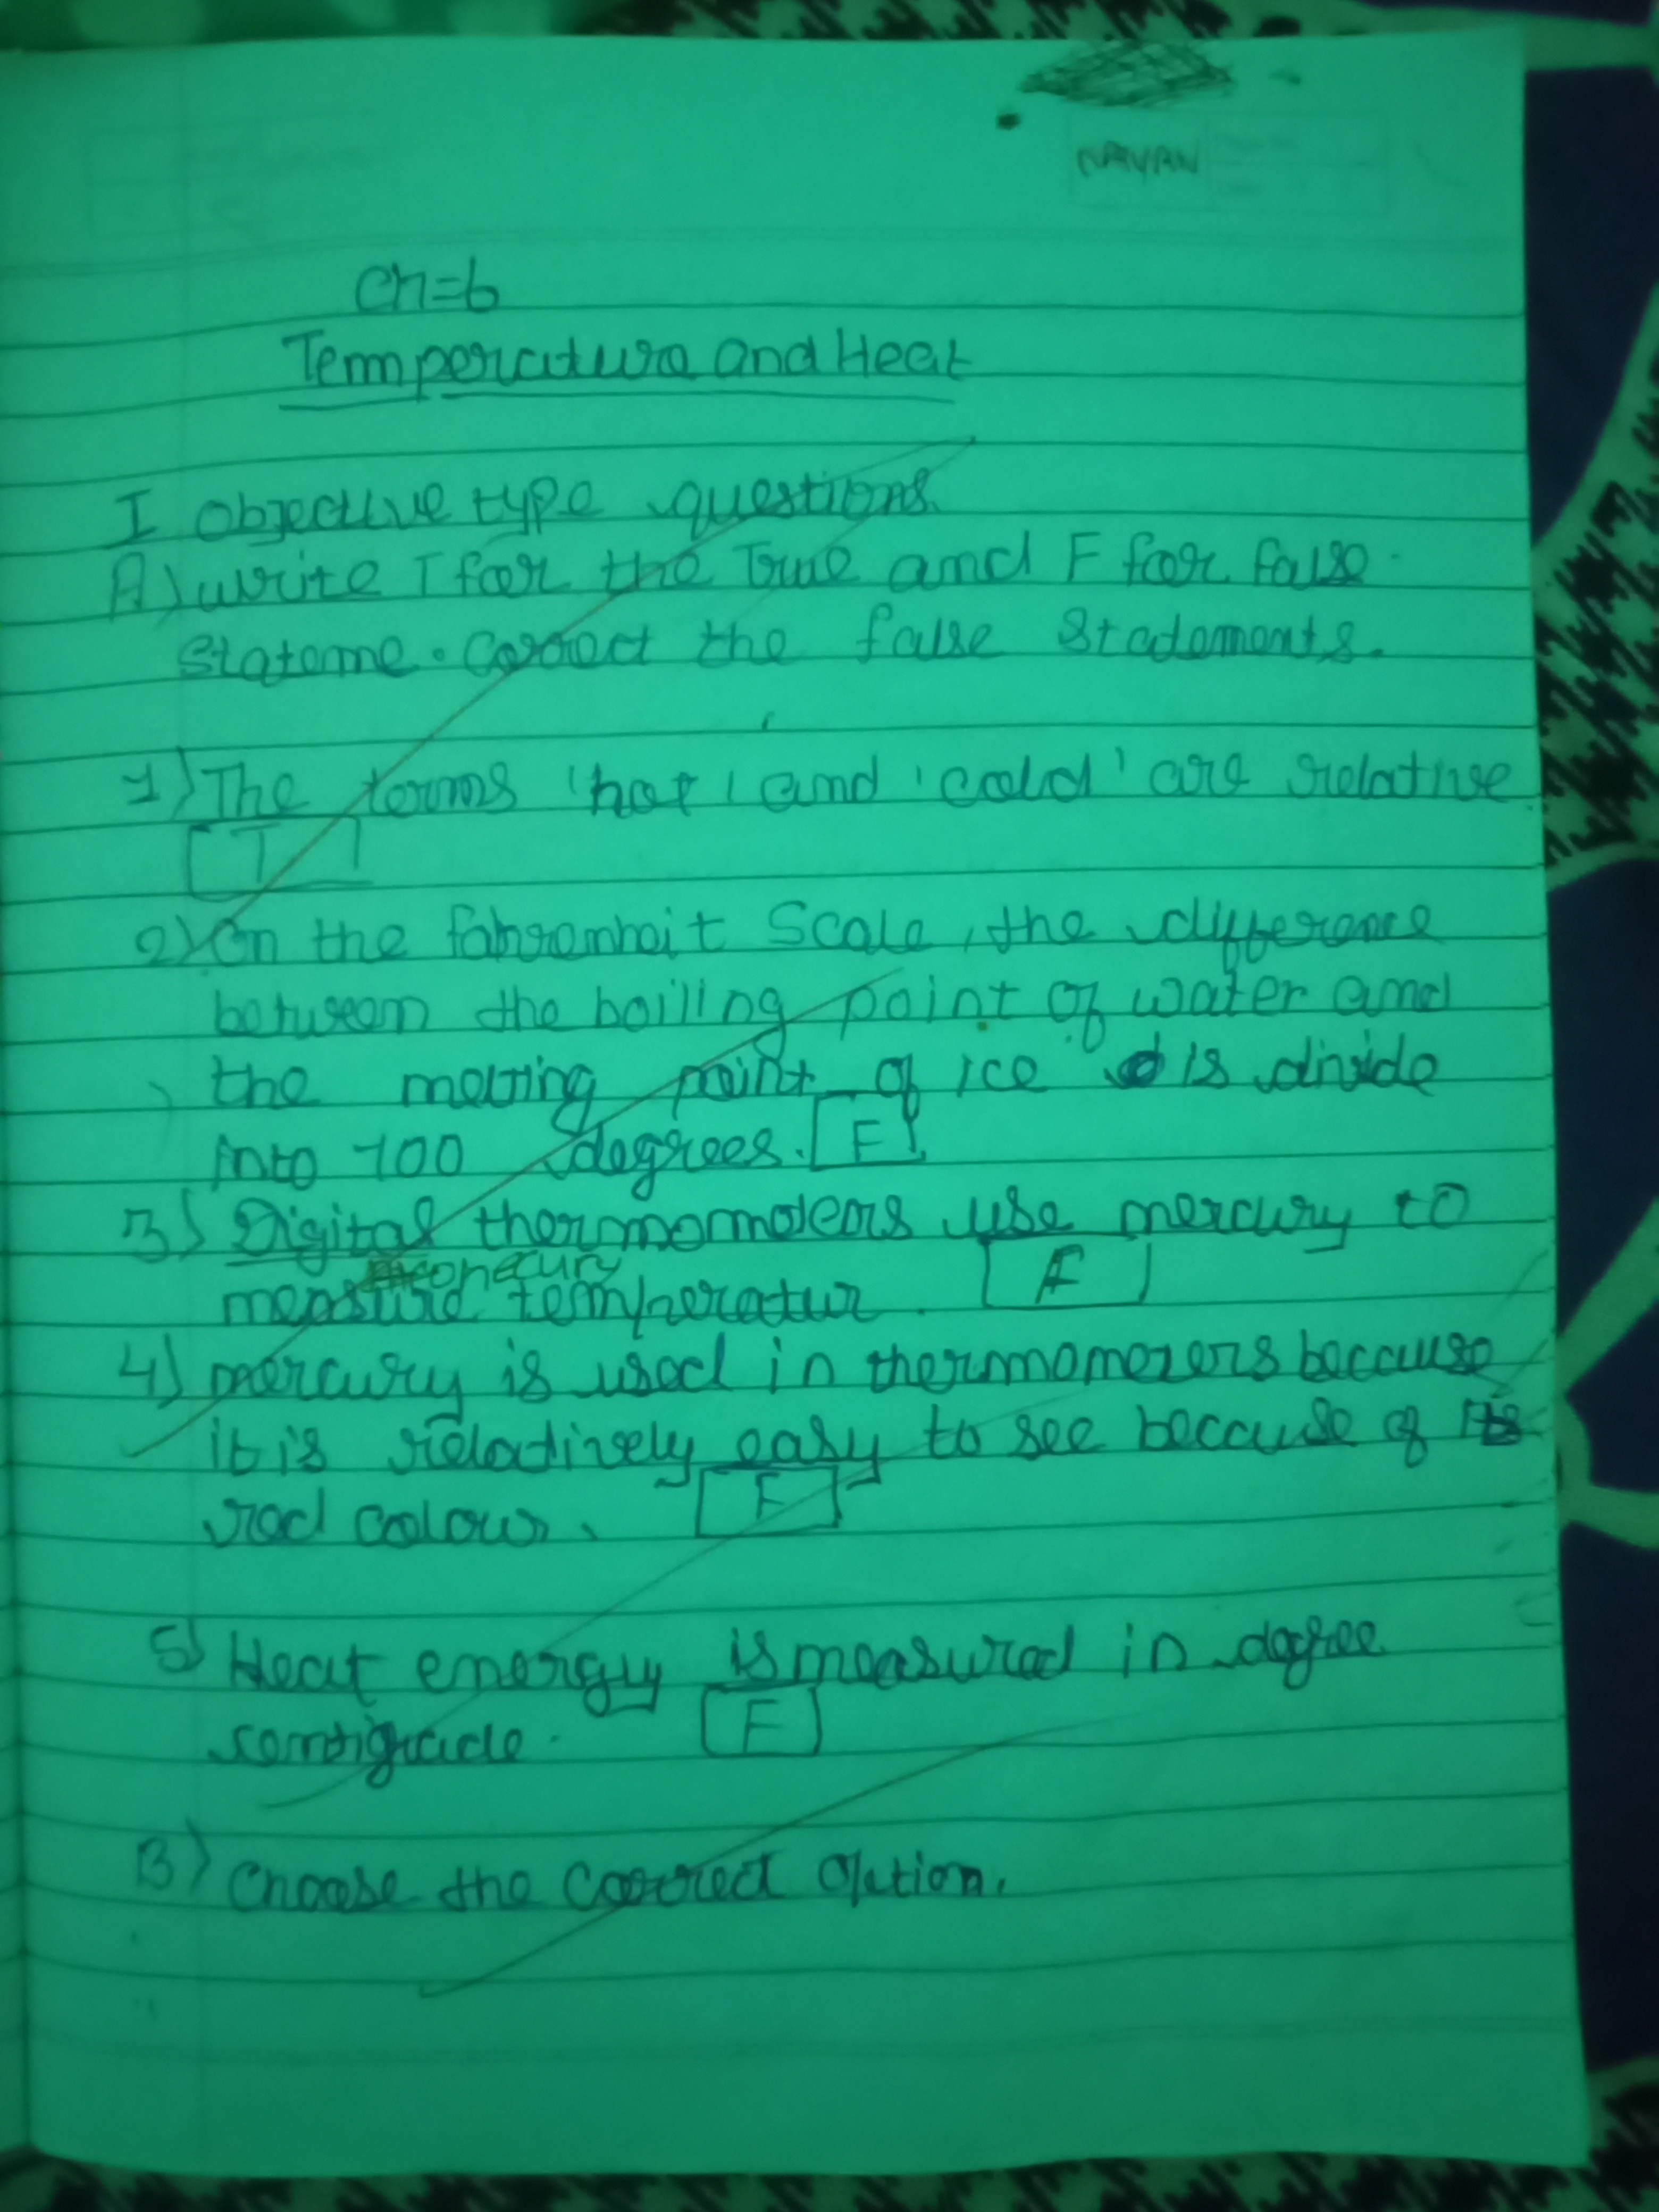 NAYAN
Ch=6
Temperature and Heat
I Objective type questions.
A) write T for the True and F for false
Stateme. Correct the false Statements.
1) The terms 'hot' and 'cold' are relative.
T
2) On the fahrenheit Scale, the difference
between the boiling point of water and
the melting point of ice is divide
into 100 degrees. F
3) Digital thermometers use mercury to
measure temperatur. F
4) mercury is used in thermometers because
it is relatively easy to see because of its
red colour. F
5) Heat energy is measured in degree
centigrade. F
B) Choose the Correct Option.